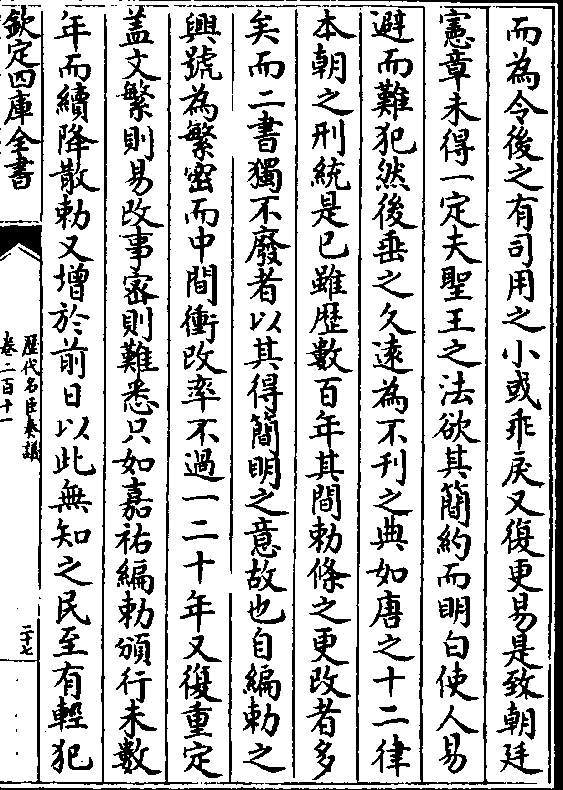 而為令後之有司用之小或乖戾又復更易是致朝廷
憲章未得一定夫聖王之法欲其簡約而明白使人易
避而難犯然後垂之久遠為不刋之典如唐之十二律
本朝之刑統是已雖歴數百年其間勅條之更改者多
矣而二書獨不廢者以其得簡明之意故也自編勅之
興號為繁密而中間衝改率不過一二十年又復重定
盖文繁則易改事宻則難悉只如嘉祐編勅頒行未數
年而續降散勅又增於前日以此無知之民至有輕犯
欽定四庫全書
歴代名臣奏議
卷二百十一
二十七